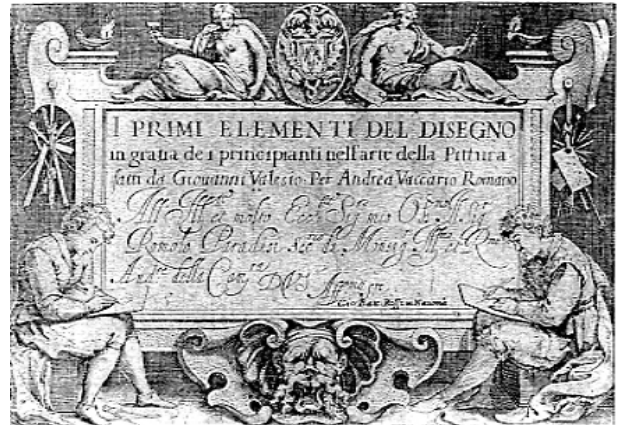 I PRIMI ELEMENTI DEL DISEGNO
in gratia de i principianti nell'arte della Pittura
fatti da Giovanni Valesio. Per Andrea Vaccario Romano
All' Ill. et molto Ecc. Sig mio Oss. Il Sig
Romolo Paradisi Sec. di Monsig. Ill. et R.
And. della Cam.
Gio Batt. Rossi in Navona